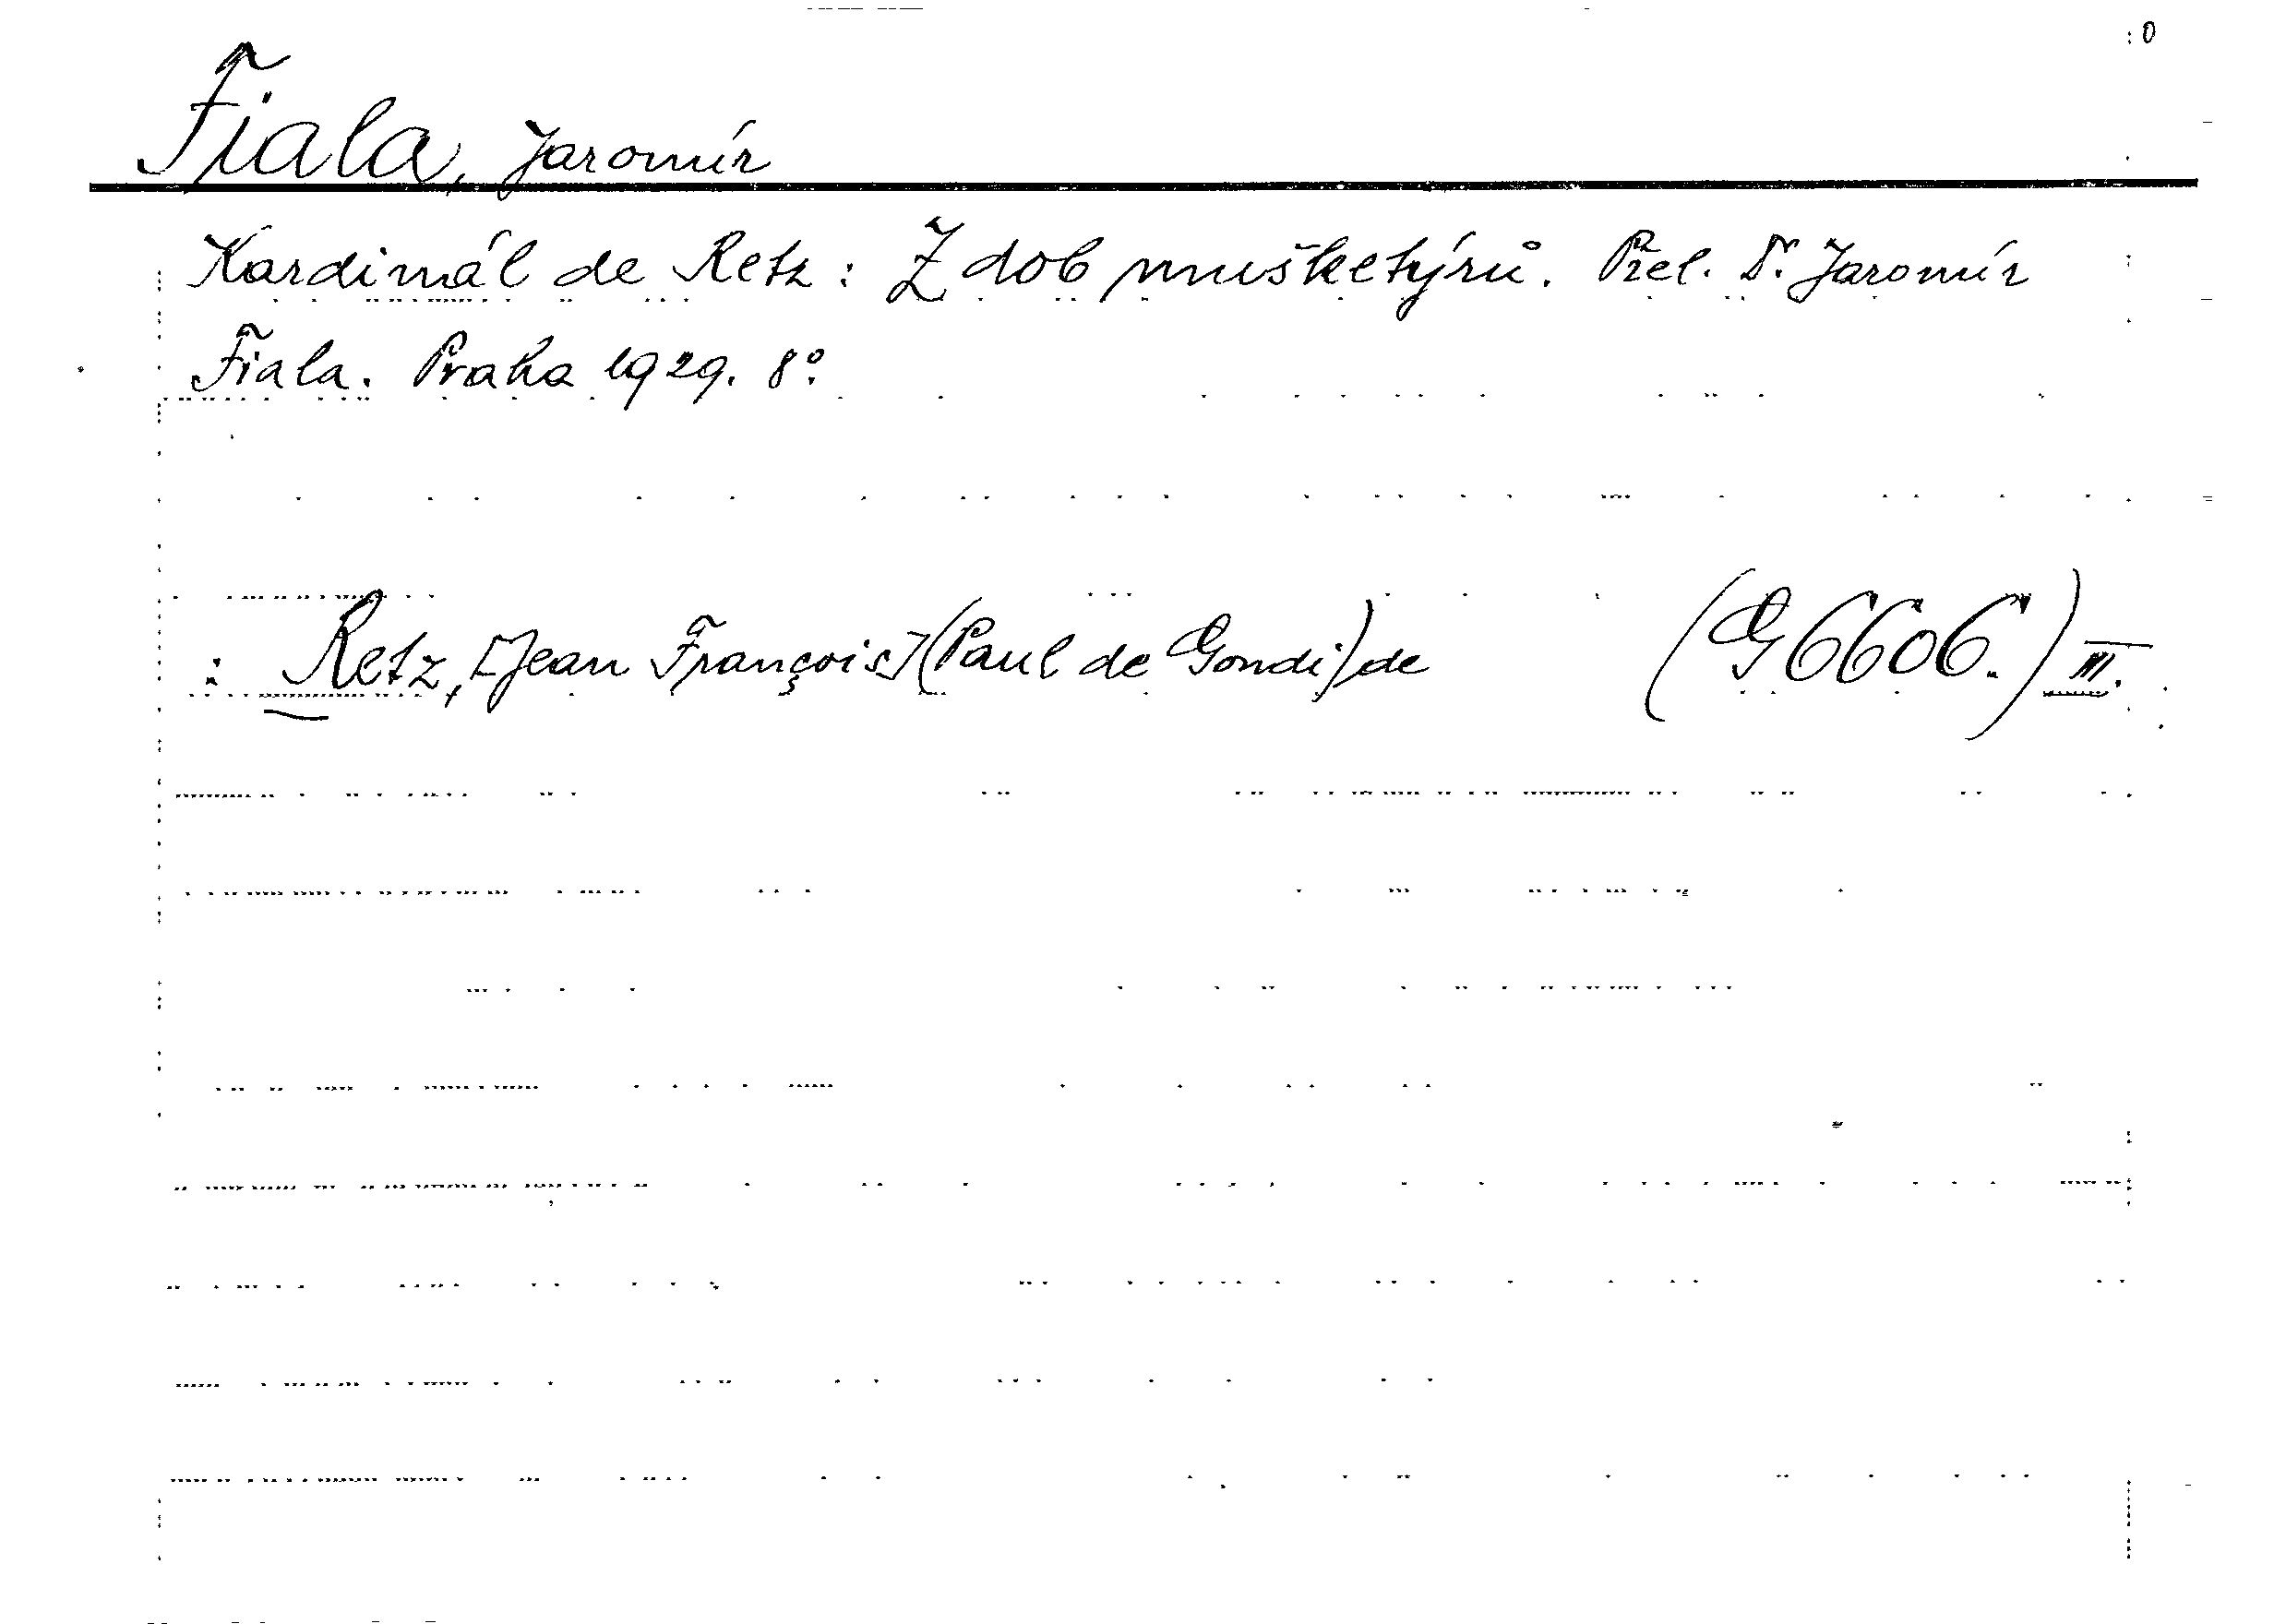 0
Fiala, Jaromír
Kardinál de Retz: Z dob mušketýrů. Přel. Dr. Jaromír
Fiala. Praha 1929. 8°.
: Retz, [Jean François] (Paul de Gondi) de (G 6606.) III.